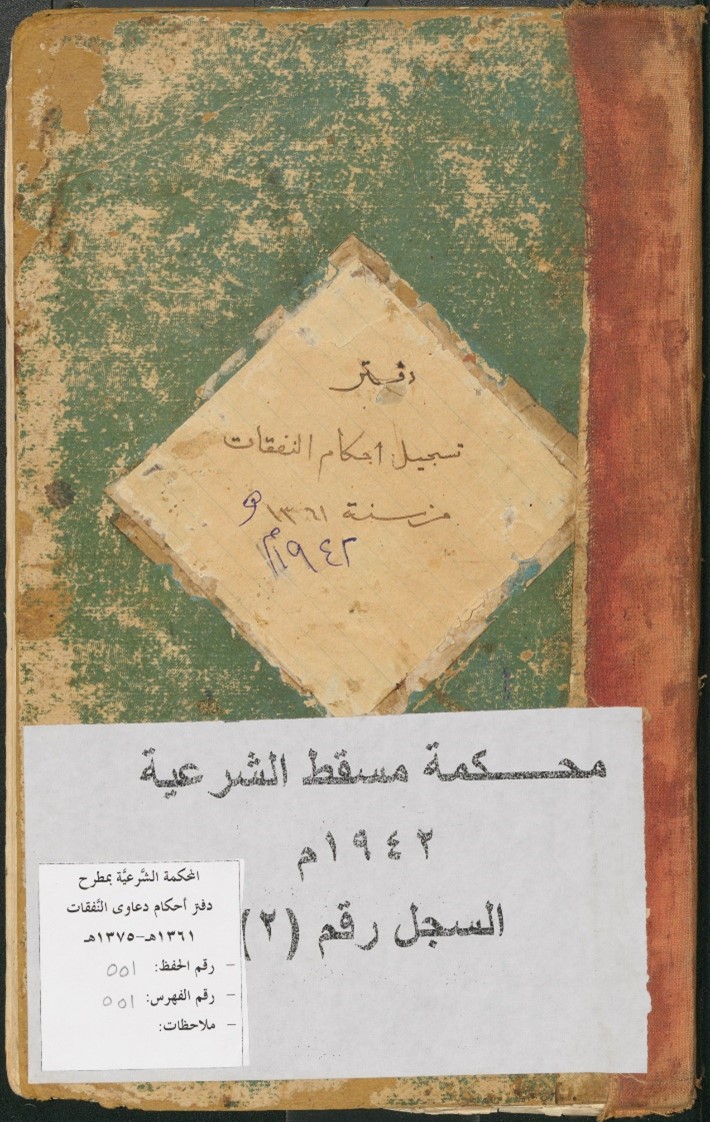 دفتر
تسجيل أحكام النفقات
من سنة ١٣٦١ هـ
١٩٤٢م
محــــكمة مسقط الشرعية
١٩٤٢م
السجل رقم (٢)
المحكمة الشَّرعيَّة بمطرح
دفتر أحكام دعاوى النَّفقات
١٣٦١هـ-١٣٧٥هـ
- رقم الحفظ: 001
- رقم الفهرس: 001
- ملاحظات: